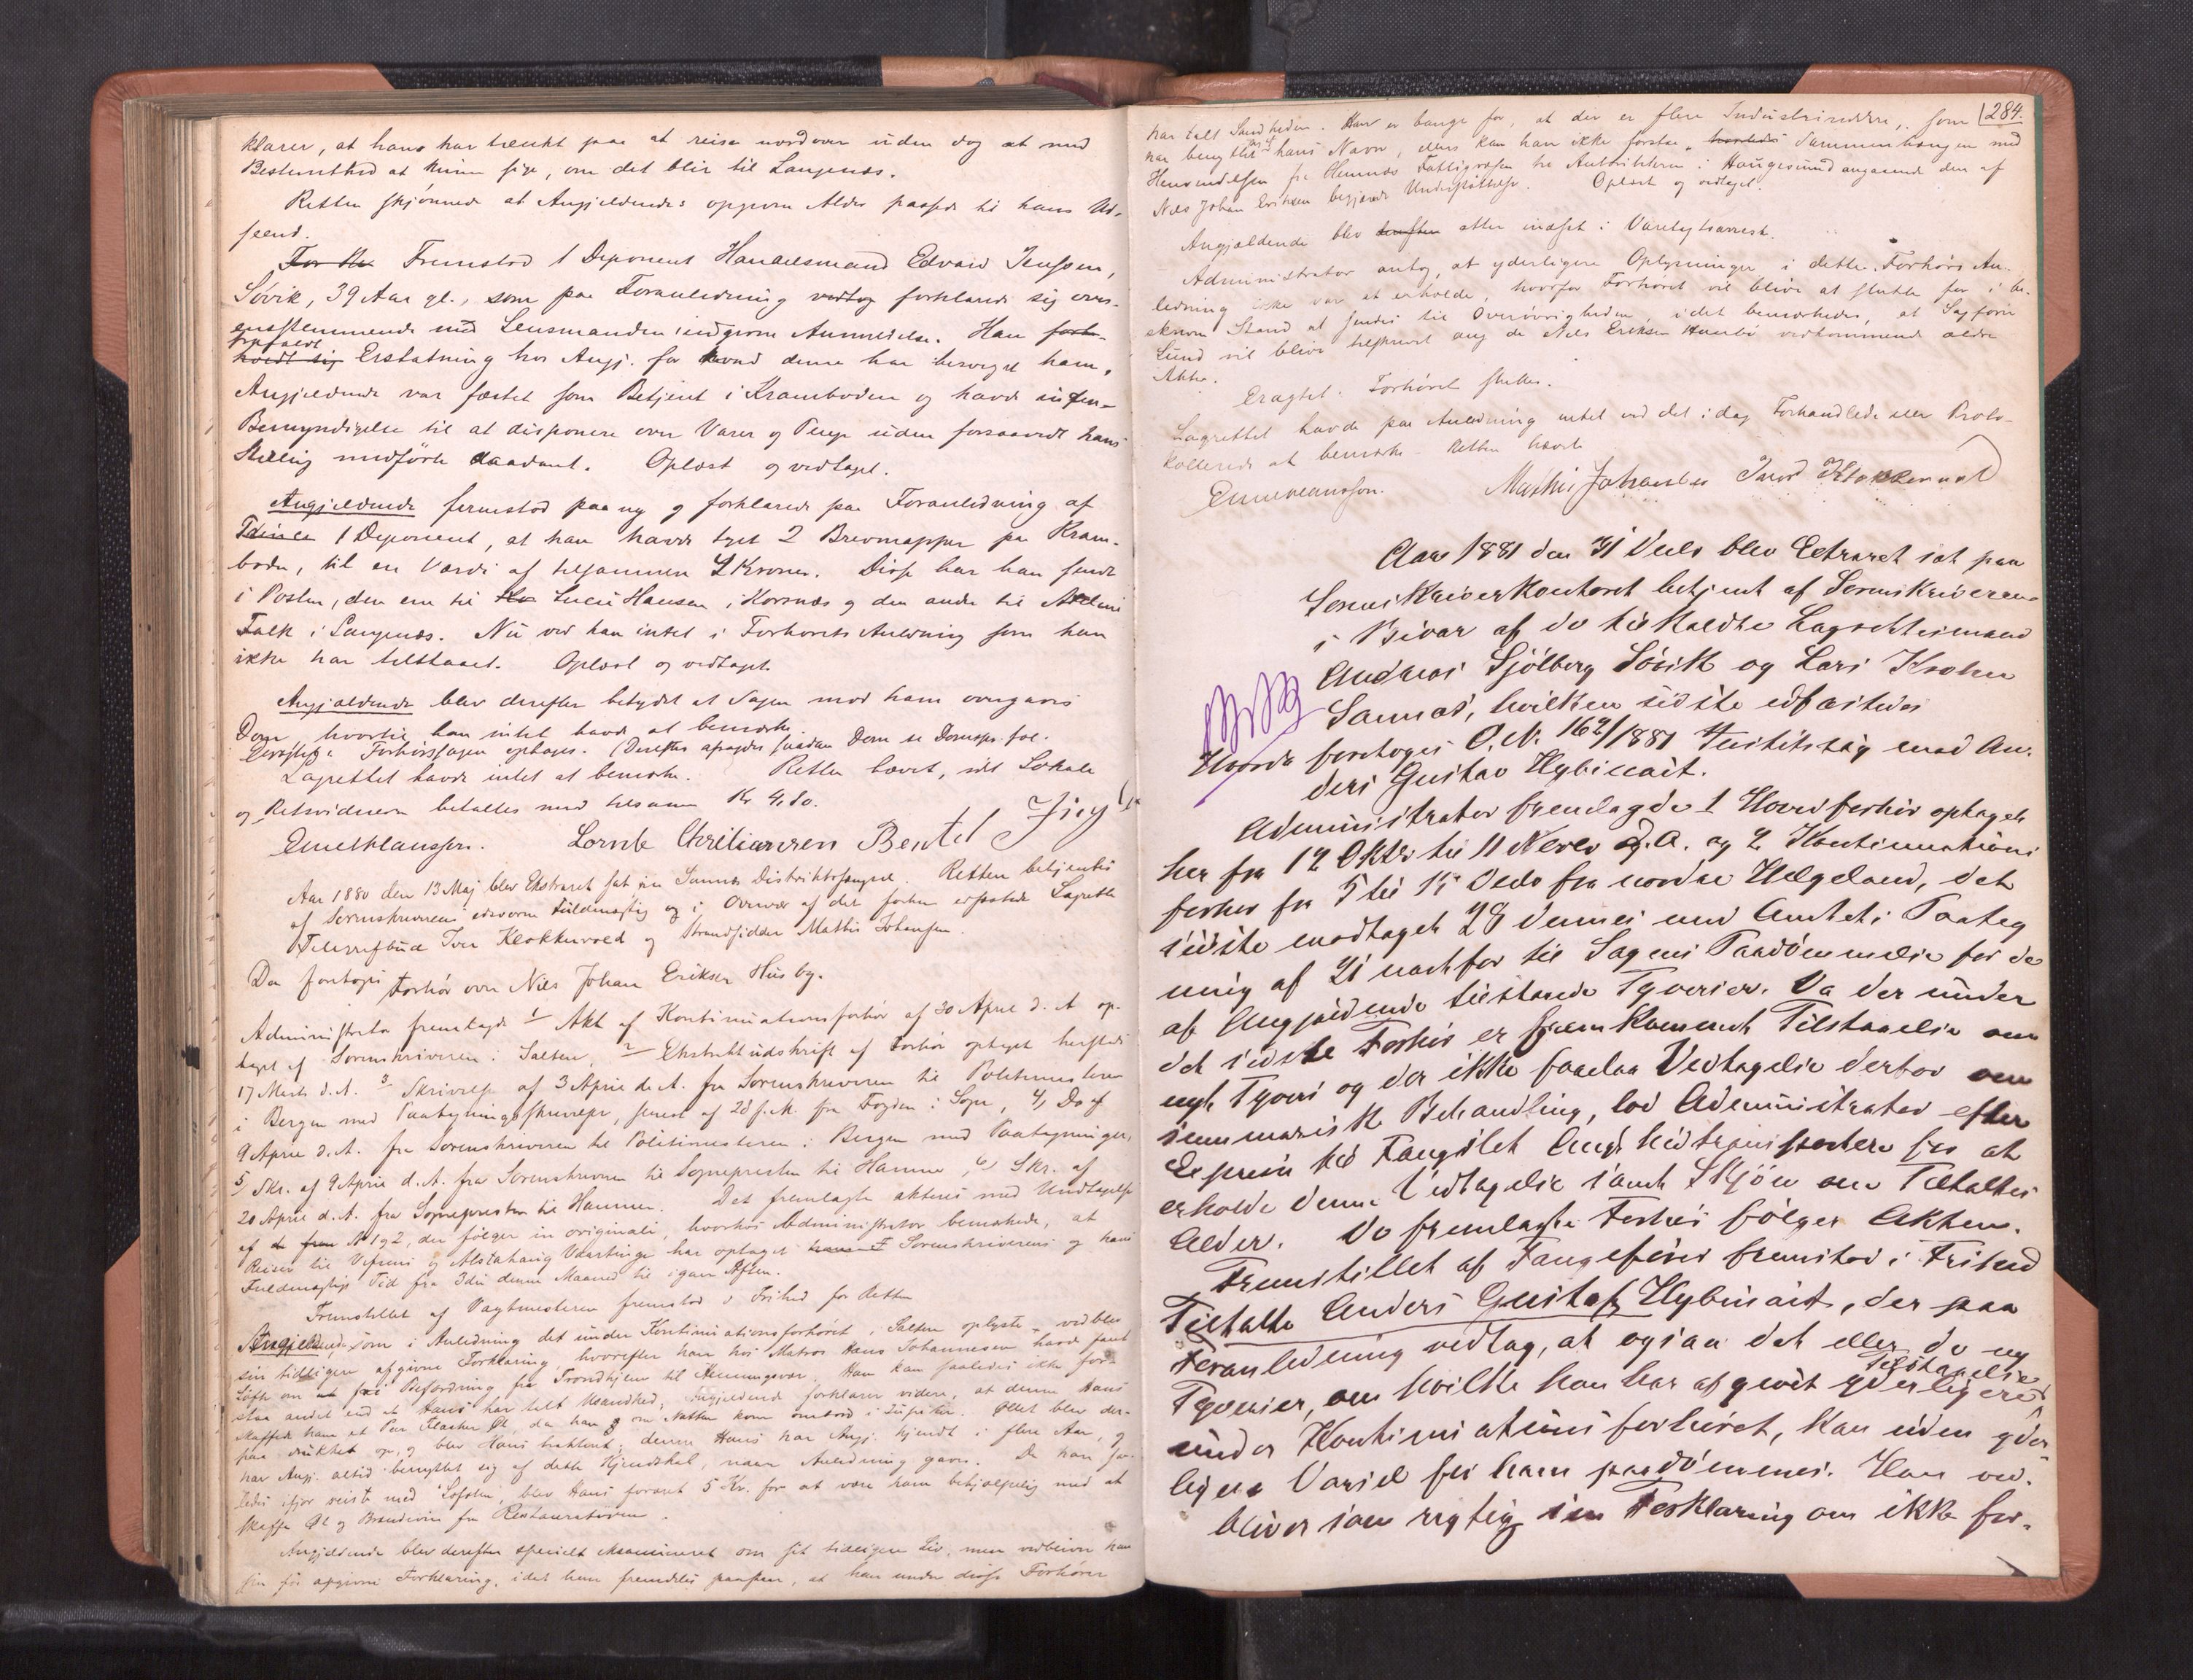 klarer, at hans har tænkt paa at reise nordover uden dog at med
Bestemthed at kunne sige, om det blir til Langenæs.
Retten skjønnede at Angjeldendes opgivne Alder passede til hans Ud-
seend.
For Re Fremstod 1 Deponent Handelsmand Edvard Jenssen,
Søvik, 39 Aar gl., som paa Foranledning vedtog forklarede sig over-
ensstemmende med Lensmandens indgivne Anmeldelse. Han forbe-
paastaar
holdt sig Erstatning hos Angj. for hvad denne har besveget ham.
Angjeldende var fæstet som Betjent i Kramboden og havde ingen
Bemyndigelse til at disponere over Varer og Penge uden forsaavidt hans
Stilling medførte saadant. Oplæst og vedtaget.
Angjeldende fremstod paa ny og forklarede paa Foranledning af
1 Deponent, at han havde taget 2 Brevmapper fra Kram-
boden, til en Værdi af tilsammen 2 Kroner. Disse har han sendt
i Posten, den ene til Lucie Hansen, Korsnæs og den anden til
Falk i Langenæs. Nu ved han intet i Forhørets Anledning som han
ikke har tilstaaet. Oplæst og vedtaget.
Angjældende blev derefter betydet at Sagen mod ham overgaves
Dom, hvortil han intet havde at bemærke.
Eragtet: Forhørssagen optages. (Derefter afsagdes saadan Dom se Domspr. fol.
Lagrettet havde intet at bemærke. Retten hævet, idet Lokale
og Retsvidnerne betaltes med tilsammen Kr. 4,80.
Emil Klaussen. Lornts Christiansen Bentel
Aar 1880 den 13 Maj blev Extraret sat paa Sannæs Distriktsfængsel. Retten betjentes
af Sorenskriverens edsvorne Fuldmægtig og i Overvær af det forhen edfæstede Lagrette
Telegrafbud Iver Klokkervold og Strandsidder Mathis Johansen.
Da foretoges Forhør over Nils Johan Eriksen Husby.
Administrator fremlagde 1/ Akt af Kontinuationsforhør af 30 April d. A. op-
taget af Sorenskriveren i Salten, 2/ Ekstraktudskrift af Forhør optaget hersteds
17 Marts d. A. 3/ Skrivelse af 3 April d. A. fra Sorenskriveren til Politimesteren
i Bergen med Paategningsskrivelse, senest af 28 s. M. fra Fogden i Sogn, 4/ Do af
9 April d. A. fra Sorenskriveren til Politimesteren i Bergen med Paategninger,
5/ Skr. af 9 April d. A. fra Sorenskriveren til Sognepresten til Hammer, 6/ Skr. af
20 April d. A. fra Sognepresten til Hammer. Det fremlagte akteres med Undtagelse
af de frem № 1 og 2, der følger in originali, hvorhos Administrator bemærkede, at
Reiser til Vefsens og Alstahaug Vaartinge har optaget Sorenskriverens og hans
Fuldmægtigs Tid fra 3die denne Maaned til igaar Aften.
Fremstillet af Vagtmesteren fremstod i Frihed for Retten
Angjeldende, som i Anledning det under Kontinuationsforhøret i Salten oplyste, vedblev
sin tidligere afgivne Forklaring, hvorefter han hos Matros Hans Johannesen havde faaet
Løfte om at fri Befordring fra Trondhjem til Henningsvær. Han kan saaledes ikke for-
staa andet end at Hans har talt Usandhed; Angjeldende forklarer videre, at denne Hans
skaffede ham et Par Flasker Øl, da han om Natten kom ombord i Jupiter. Øllet blev der-
paa drukket op, og blev Hans trakteret; denne Hans har Angj. kjendt i flere Aar, og
har Angj. altid benyttet sig af dette Kjendskab, naar Anledning gaves. Da han saa-
ledes ifjor reiste med "Lofoten", blev Hans foræret 5 Kr. for at være ham behjælpelig med at
skaffe Øl og Brændevin fra Restauratøren.
Angjeldende blev derefter specielt examineret om sit tidligere Liv, men vedblev han
sin før afgivne Forklaring, idet han fremdeles paastaar, at han under disse Forhører
284.
har talt Sandheden. Han er bange for, at der er flere Industririddere, som
har benyttet sig af hans Navn, ellers kan han ikke forstaa hvorledes Sammenhængen med
Henvendelsen fra Hemnæs Fattigvæsen til Autoriteterne i Haugesund angaaende den af
Nils Johan Eriksen begjærede Understøttelse. Oplæst og vedtaget.
Angjældende blev derefter atter indsat i Varetægtsarrest.
Administrator antog, at yderligere Oplysninger i dette Forhørs An-
ledning ikke var at erholde, hvorfor Forhøret vil blive at slutte for i be-
skreven Stand at sendes til Overøvrigheden, idet bemærkedes, at Sagfører
Lund vil blive tilskrevet ang. de Nils Eriksen Husebø vedkommende ældre
Akter.
Eragtet: Forhøret sluttes.
Lagrettet havde paa Anledning intet ved det i dag Forhandlede eller Proto-
kollerede at bemærke. Retten hævet.
Emil Klaussen. Mathis Johansen Iver Klokkervold
Aar 1881 den 31 Decb blev Extraret sat paa
Sorenskriverkontoret betjent af Sorenskriveren
i Bivær af de tilkaldte Lagrettesmænd
Andreas Sjölberg Søvik og Lars Krohn
Sannæs, hvilken sidste edfæstedes
Hvorda foretoges O. N. 162/1881 Justitssag mod An-
ders Gustav Hybinait.
Administrator fremlagde 1 Hovedforhør optaget
her fra 12 Oktbr til 11 Novbr d. A. og 2 Kontinuations
forhør fra 5 til 15 Decb fra nordre Helgeland, det
sidste modtaget 28 dennes med Amtets Paateg
ning af 21 næstfør til Sagens Paadømmelse for de
af Angjældende tilstaaede Tyverier. Da der under
det sidste Forhør er fremkommet Tilstaaelse om
nyt Tyveri og der ikke foreelaa Vedtagelse derfor om
summarisk Behandling, lod Administrator efter
Exprés til Fængslet Angj. hidtransportere for at
erholde denne Vedtagelse samt Skjøn om Tiltaltes
Alder. De fremlagte Forhør følger Akten.
Fremstillet af Fangefører fremstod i Frihed
Tiltalte Anders Gustaf Hybinait, der paa
Foranledning vedtog, at ogsaa det eller de ny
Tilstaaelse
Tyverier, om hvilke han har afgivet yderligere
under Kontinuationsforhøret, kan uden yder
ligere Varsel for ham paadømmes. Han ved-
bliver som rigtig sin Forklaring om ikke for-